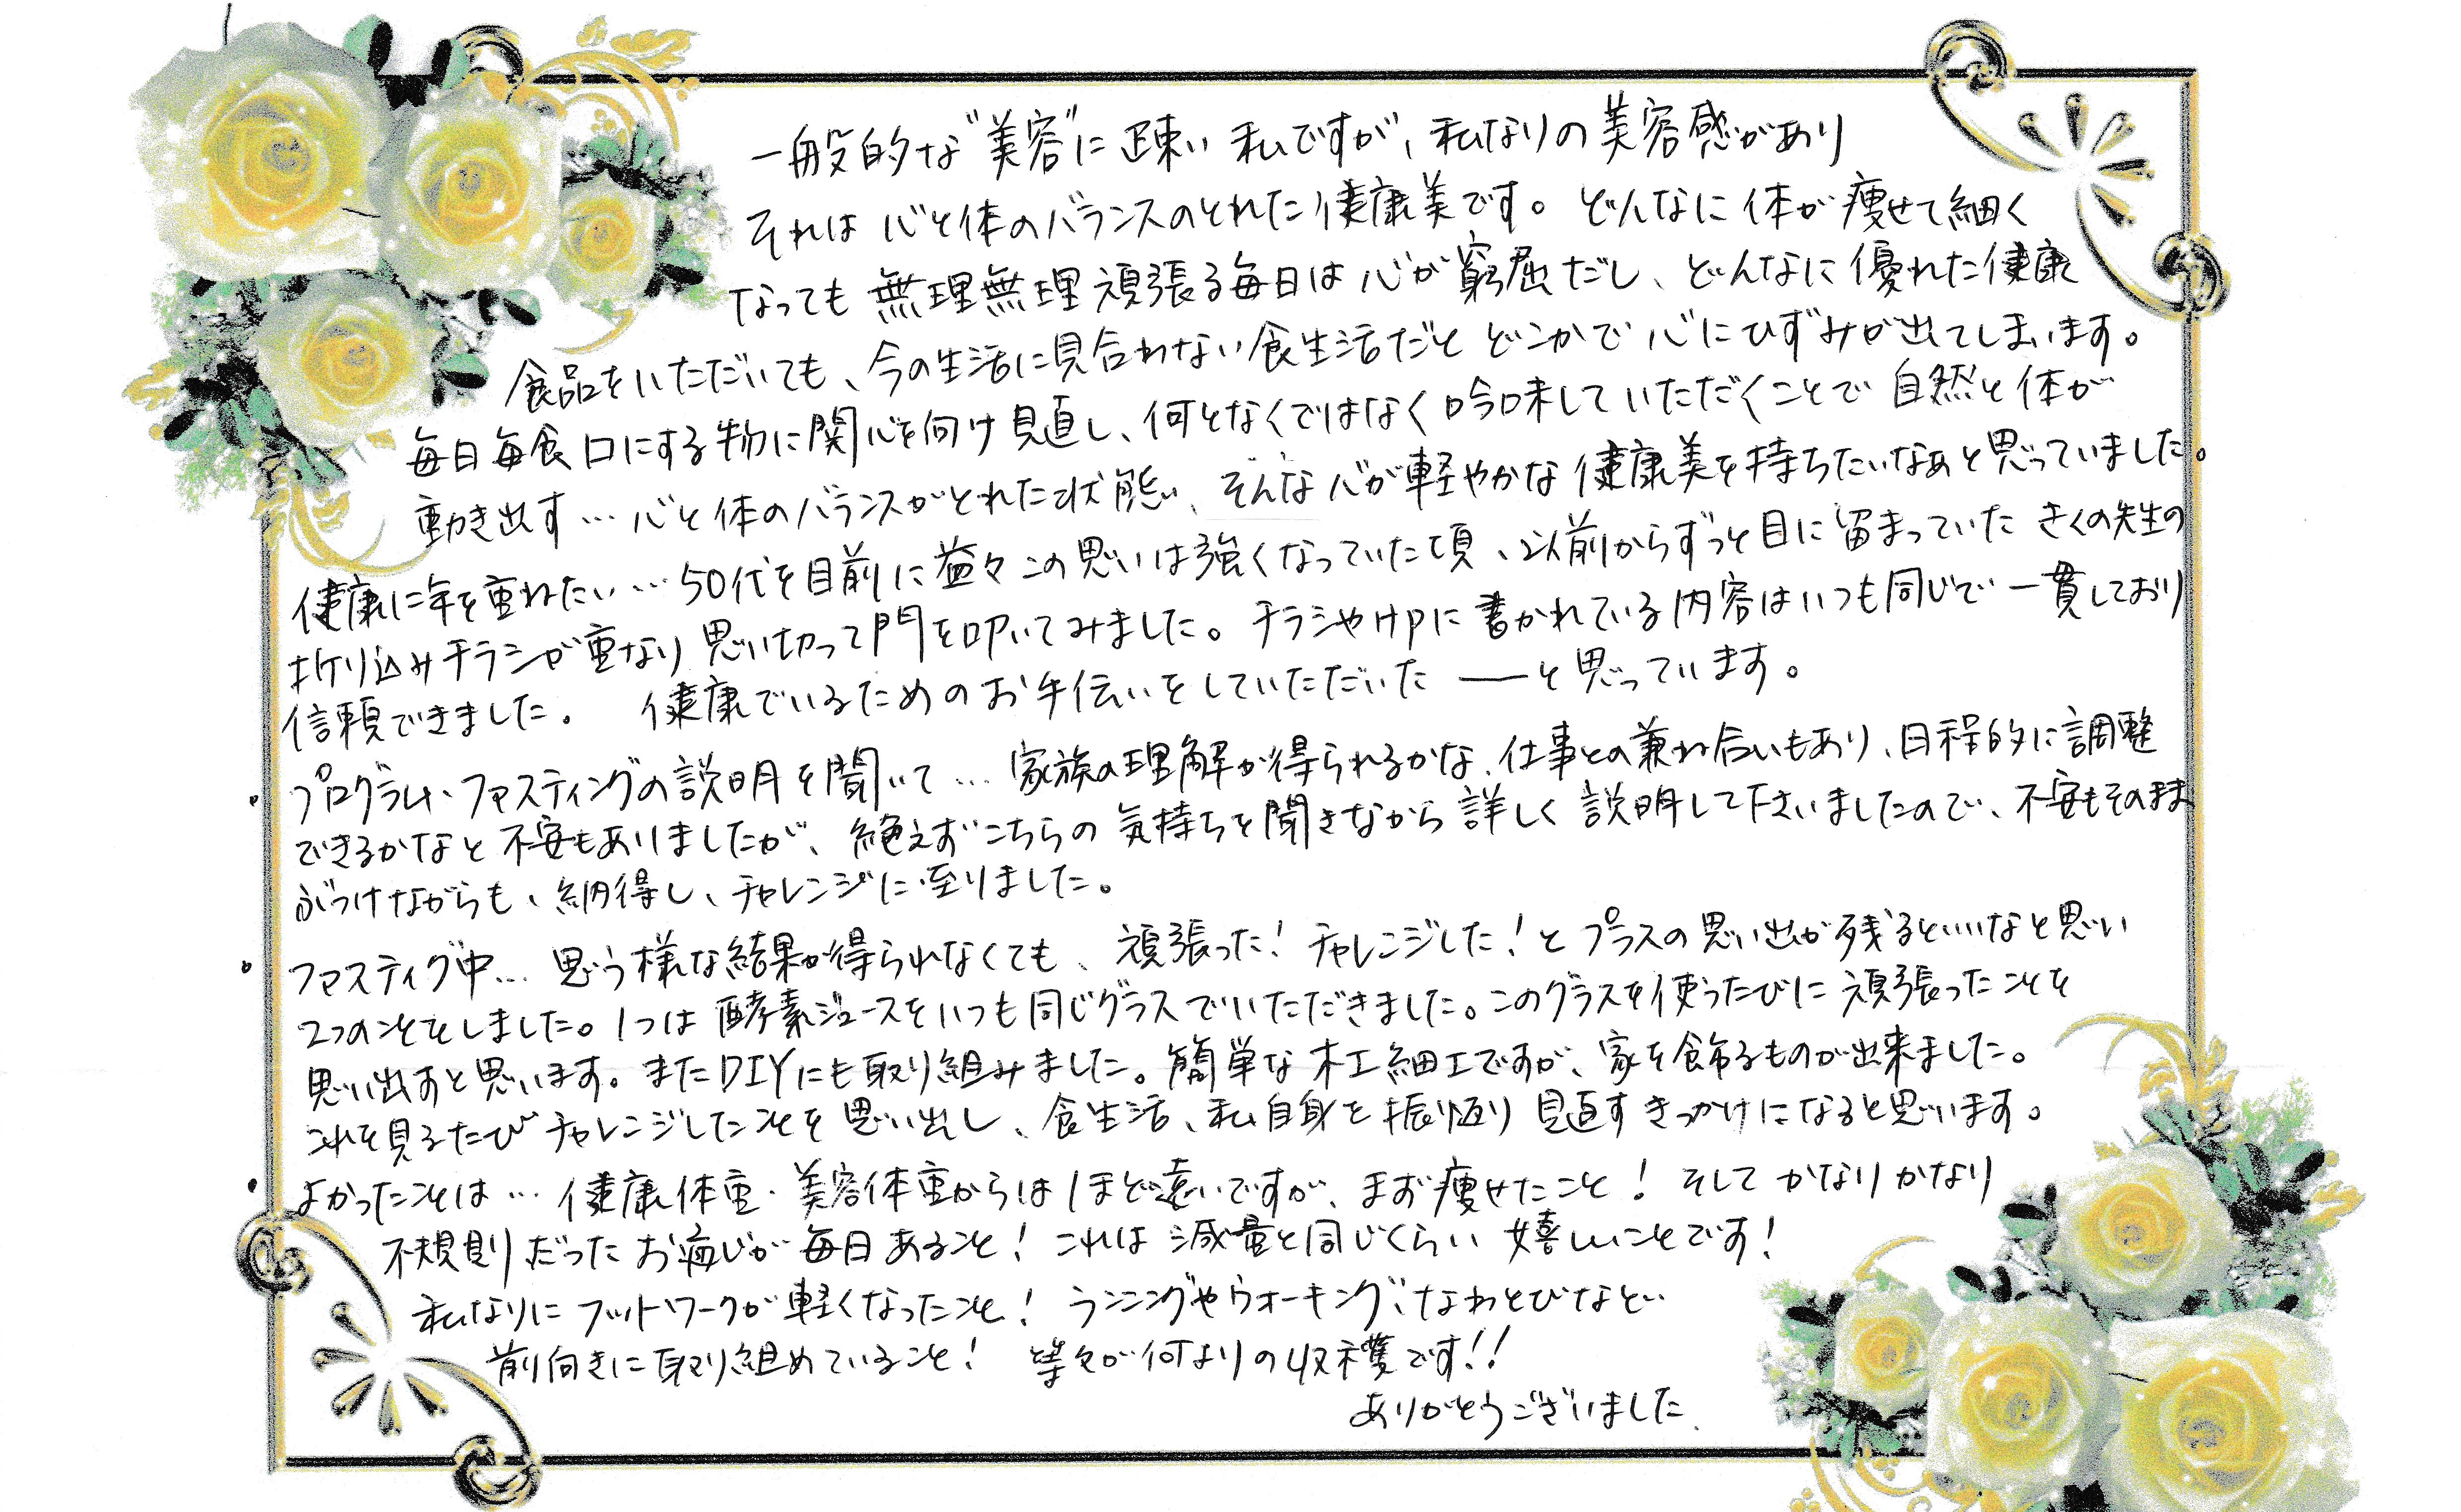 一般的な"美容"に疎い私ですが、私なりの美容感があり
それは心と体のバランスのとれた健康美です。どんなに体が痩せて細く
なっても無理無理頑張る毎日は心が窮屈だし、どんなに優れた健康
食品をいただいても、今の生活に見合わない食生活だとどこかで心にひずみが出てしまいます。
毎日毎食口にする物に関心を向け見直し、何となくではなく吟味していただくことで自然と体が
動き出す…心と体のバランスがとれた状態、そんな心が軽やかな健康美を持ちたいなぁと思っていました。
健康に年を重ねたい…50代を目前に益々この思いは強くなっていた頃、以前からずっと目に留まっていたきくの先生の
折り込みチラシが重なり思い切って門を叩いてみました。チラシやHPに書かれている内容はいつも同じで一貫しており
信頼できました。 健康でいるためのお手伝いをしていただいた ――と思っています。
・プログラム・ファスティングの説明を聞いて…家族の理解が得られるかな、仕事との兼ね合いもあり、日程的に調整
できるかなと不安もありましたが、絶えずこちらの気持ちを聞きながら詳しく説明して下さいましたので、不安もそのまま
ぶつけながらも、納得し、チャレンジに至りました。
・ファスティグ中…思う様な結果が得られなくても、頑張った!チャレンジした!とプラスの思い出が残るといいなと思い
2つのことをしました。1つは酵素ジュースをいつも同じグラスでいただきました。このグラスを使うたびに頑張ったことを
思い出すと思います。またDIYにも取り組みました。簡単な木工細工ですが、家を飾るものが出来ました。
これを見るたびチャレンジしたことを思い出し、食生活、私自身を振り返り見直すきっかけになると思います。
・よかったことは…健康体重・美容体重からはほど遠いですが、まず痩せたこと!そしてかなりかなり
不規則だったお通じが毎日あること!これは減量と同じくらい嬉しいことです!
私なりにフットワークが軽くなったこと!ランニングやウォーキング、なわとびなど…
前向きに取り組めていること! 等々が何よりの収穫です!!
ありがとうございました。